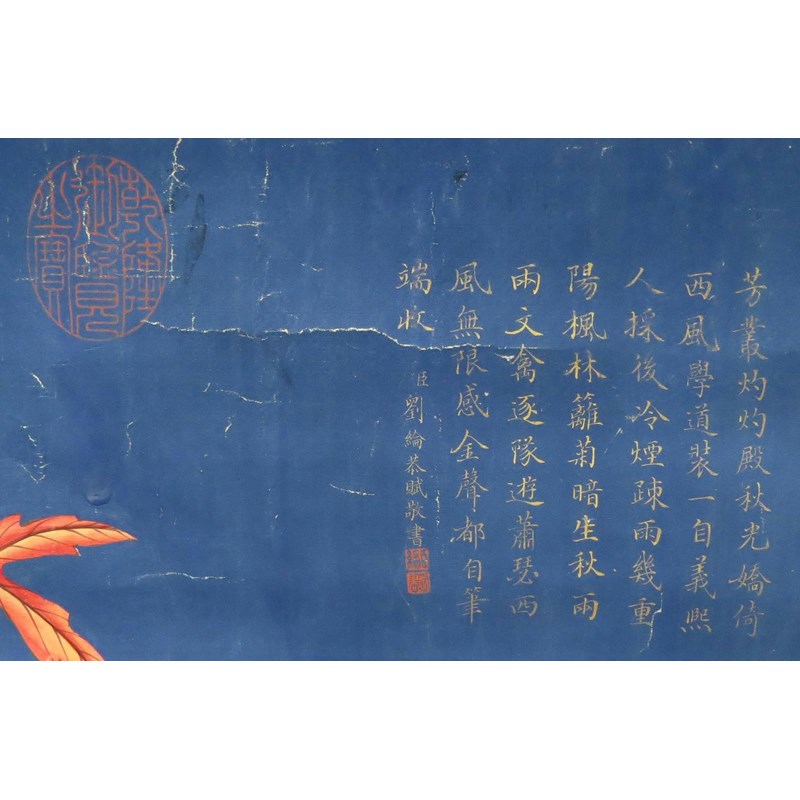 芳叢灼灼殿秋光嬌倚
西風學道裝一自義熙
人採後冷煙疎雨幾重
陽楓林籬菊暗生秋兩
兩文禽逐隊遊蕭瑟西
風無限感金聲都自筆
端收
臣劉綸恭賦敬書
乾隆御覽之寶